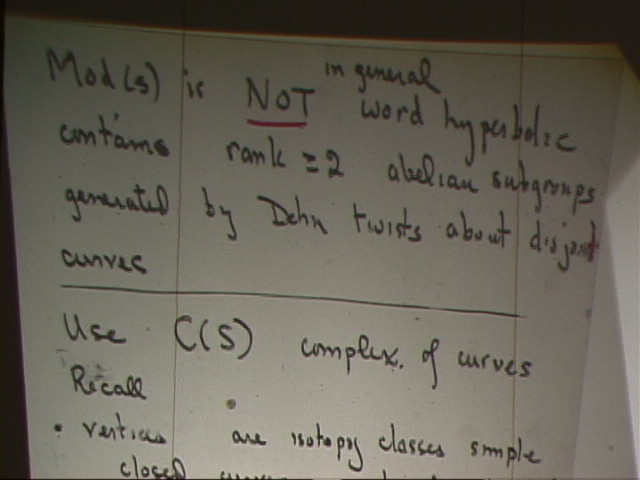 in general
Mod(S) is NOT word hyperbolic
contains rank ≥2 abelian subgroups
generated by Dehn twists about disjoint
curves
Use C(S) complex of curves
Recall
• vertices are isotopy classes simple
closed